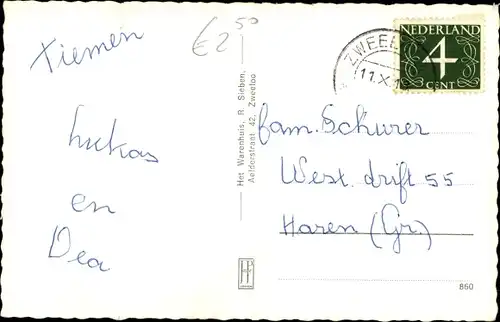 € 2,50
Tiemen
Lukas
en
Dea
Het Warenhuis, R. Sieben,
Aelderstraat 42, Zweeloo
NEDERLAND
4
CENT
ZWEEL
11.X.
fam. Schurer
West. drift 55
Haren (Gr.)
860